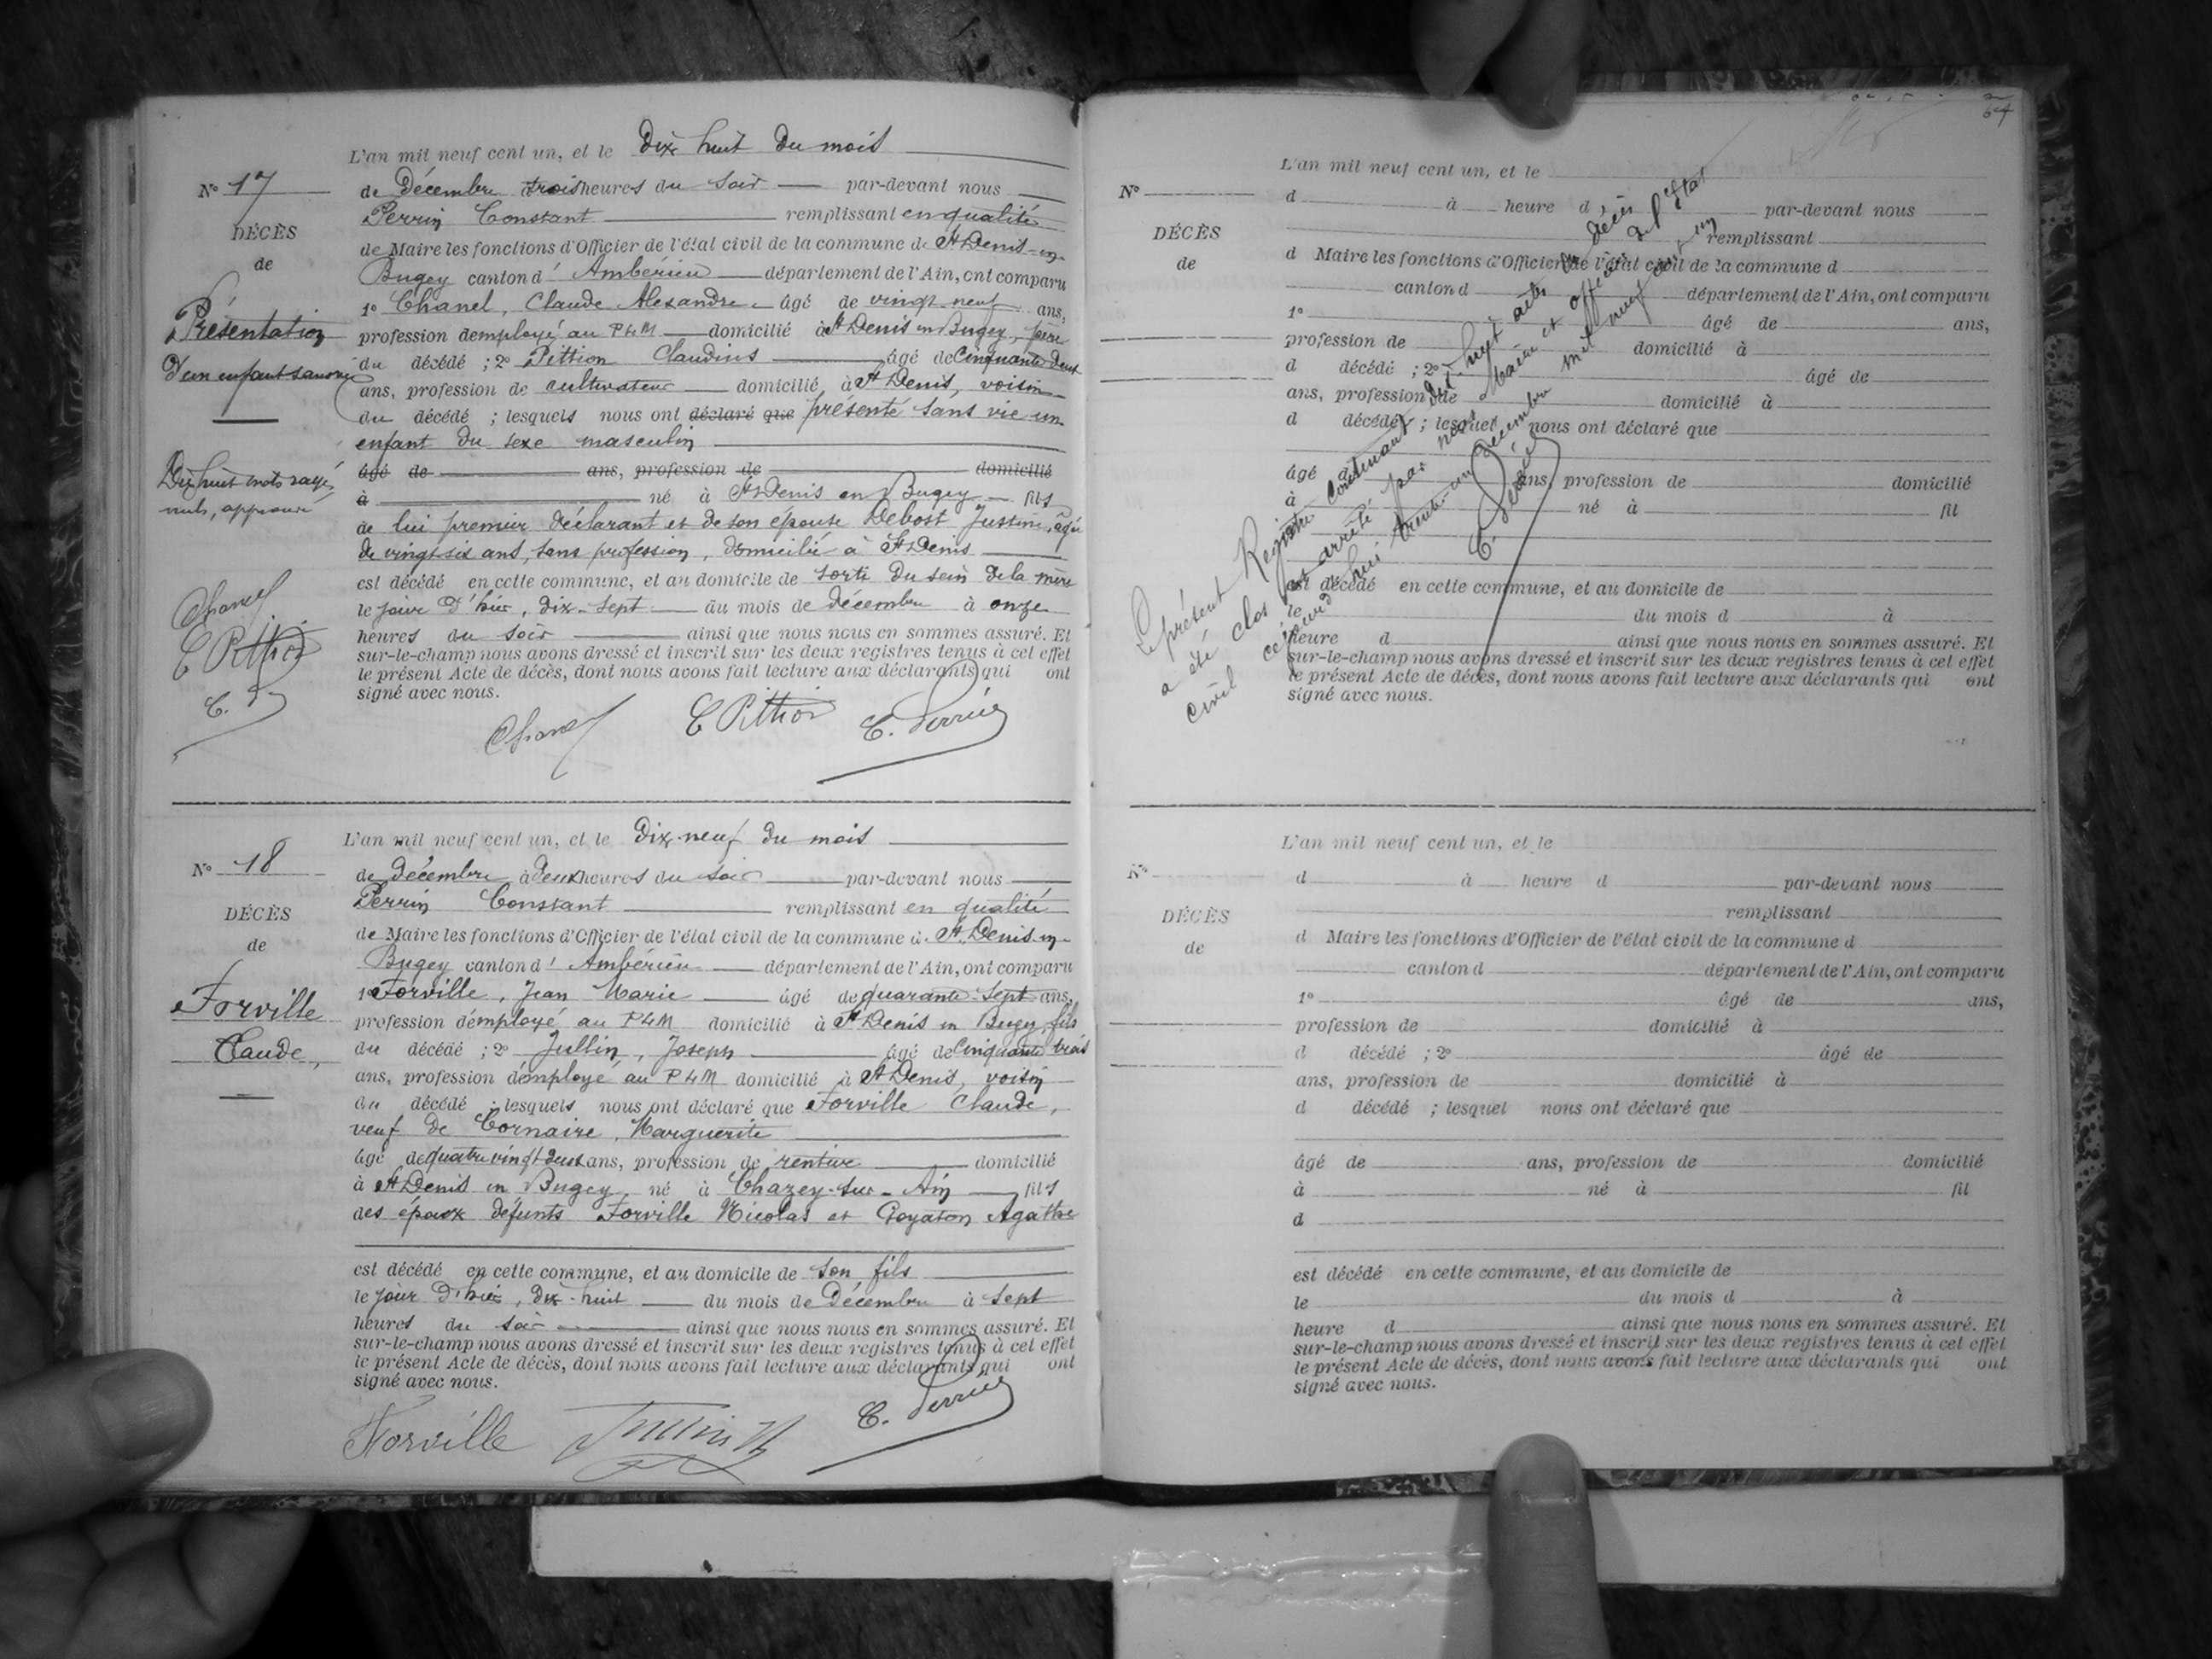 L'an mil neuf cent un, et le dix huit du mois
N° 17
de Décembre à trois heures du soir par-devant nous
Perrin Constant remplissant en qualité
DÉCÈS
de Maire les fonctions d'Officier de l'état civil de la commune de St Denis-en-
de
Bugey canton d'Ambérieu département de l'Ain, ont comparu
1° Chanel, Claude Alexandre âgé de vingt neuf ans,
Présentation
profession d'employé au P.L.M domicilié à St Denis en Bugey, père
d'un enfant sans vie
du décédé ; 2° Pittion Claudius âgé de Cinquante deux
ans, profession de cultivateur domicilié, à St Denis, voisin
du décédé ; lesquels nous ont déclaré que présenté sans vie un
enfant du sexe masculin
Dix huit mots rayés
âgé de ans, profession de domicilié
nuls, approuvé
à né à St Denis en Bugey fils
de lui premier déclarant et de son épouse Debost Justine, âgée
de vingt six ans, sans profession, domiciliée à St Denis
est décédé en cette commune, et au domicile de sorti du sein de la mère
Chanel
le jour d'hier, dix-sept du mois de décembre à onze
C Pittion
heures du soir ainsi que nous nous en sommes assuré. Et
sur-le-champ nous avons dressé et inscrit sur les deux registres tenus à cet effet
le présent Acte de décès, dont nous avons fait lecture aux déclarants qui ont
C. P
signé avec nous.
Chanel C Pittion C. Perrin
L'an mil neuf cent un, et le dix-neuf du mois
N° 18
de décembre à deux heures du soir par-devant nous
Perrin Constant remplissant en qualité
DÉCÈS
de Maire les fonctions d'Officier de l'état civil de la commune de St Denis-en-
de
Bugey canton d'Ambérieu département de l'Ain, ont comparu
1° Forville, Jean Marie âgé de quarante-sept ans,
Forville
profession d'employé au P.L.M domicilié à St Denis en Bugey, fils
Claude,
du décédé ; 2° Jullin, Joseph âgé de Cinquante trois
ans, profession d'employé au P.L.M domicilié à St Denis, voisin
du décédé ; lesquels nous ont déclaré que Forville Claude,
veuf de Cornaire, Marguerite
âgé de quatre vingt deux ans, profession de rentier domicilié
à St Denis en Bugey, né à Chazey-sur-Ain fils
des époux défunts Forville Nicolas et Goyaton Agathe
est décédé en cette commune, et au domicile de son fils
le jour d'hier, dix-huit du mois de Décembre à sept
heures du soir ainsi que nous nous en sommes assuré. Et
sur-le-champ nous avons dressé et inscrit sur les deux registres tenus à cet effet
le présent Acte de décès, dont nous avons fait lecture aux déclarants qui ont
signé avec nous.
Forville Jullin C. Perrin
L'an mil neuf cent un, et le
N°
d à heure d par-devant nous
remplissant
DÉCÈS
d Maire les fonctions d'Officier de l'état civil de la commune d
de
canton d département de l'Ain, ont comparu
1° âgé de ans,
profession de domicilié à
d décédé ; 2° âgé de
ans, profession de domicilié à
d décédé ; lesquel nous ont déclaré que
âgé de ans, profession de domicilié
à né à fil
est décédé en cette commune, et au domicile de
le du mois d à
heure d ainsi que nous nous en sommes assuré. Et
sur-le-champ nous avons dressé et inscrit sur les deux registres tenus à cet effet
le présent Acte de décès, dont nous avons fait lecture aux déclarants qui ont
signé avec nous.
Le présent Registre contenant dix-huit actes de décès
a été clos et arrêté par nous Maire et officier de l'Etat
civil cejourd'hui trente-un décembre mil neuf cent un
C. Perrin
L'an mil neuf cent un, et le
N°
d à heure d par-devant nous
remplissant
DÉCÈS
d Maire les fonctions d'Officier de l'état civil de la commune d
de
canton d département de l'Ain, ont comparu
1° âgé de ans,
profession de domicilié à
d décédé ; 2° âgé de
ans, profession de domicilié à
d décédé ; lesquel nous ont déclaré que
âgé de ans, profession de domicilié
à né à fil
d
est décédé en cette commune, et au domicile de
le du mois d à
heure d ainsi que nous nous en sommes assuré. Et
sur-le-champ nous avons dressé et inscrit sur les deux registres tenus à cet effet
le présent Acte de décès, dont nous avons fait lecture aux déclarants qui ont
signé avec nous.